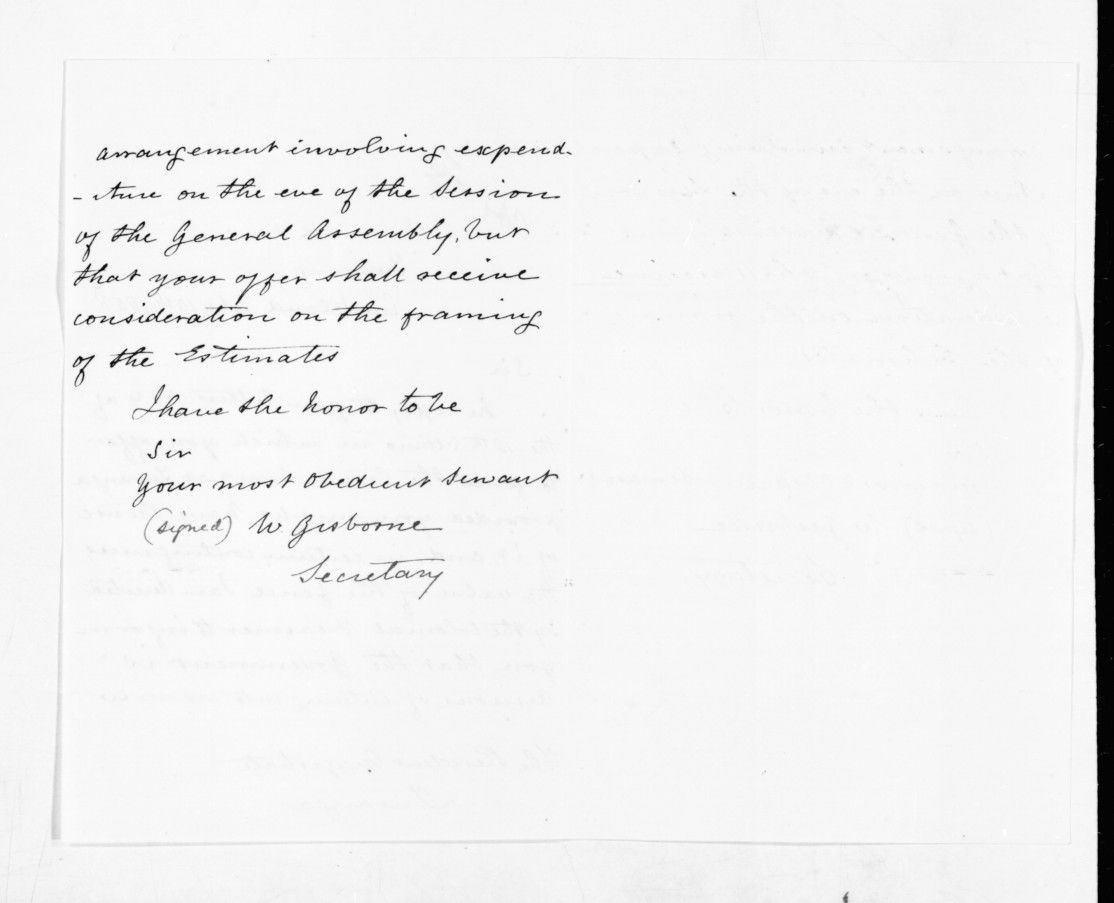 arrangement involving expend-
-iture on the eve of the Session
of the General Assembly, but
that your offer shall receive
consideration on the framing
of the Estimates
I have the honor to be
Sir
Your most Obedient Servant
(signed) W. Gisborne
Secretary